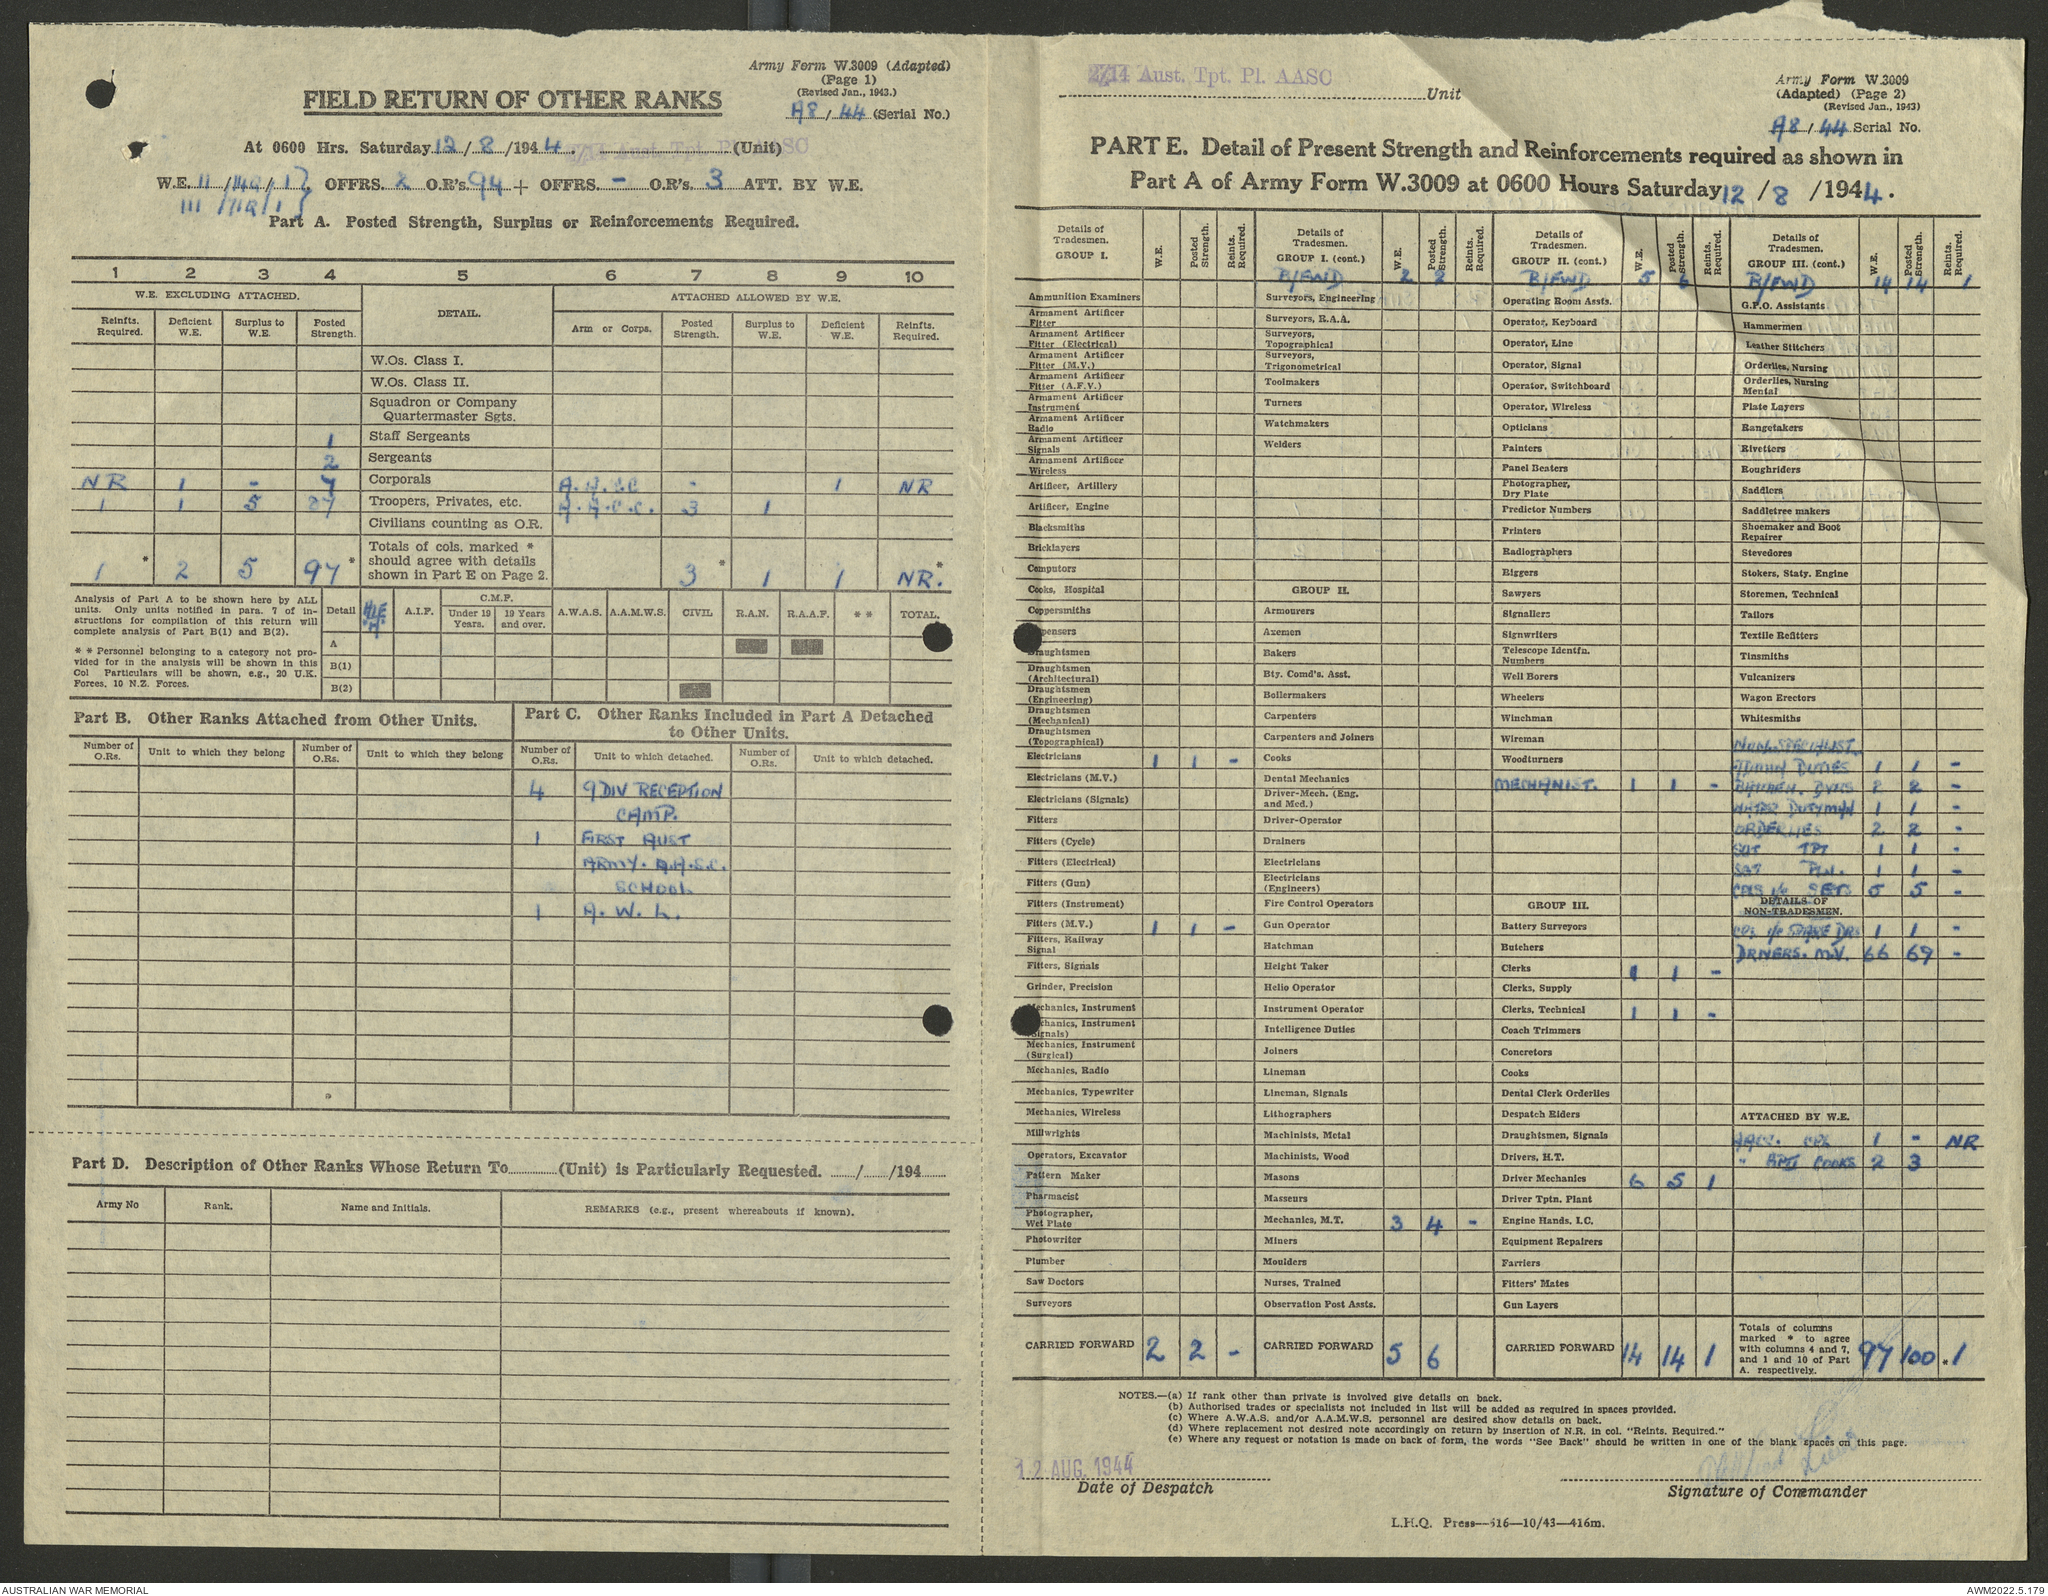 Army Form W.3009 (Adapted)
(Page 1)
(Revised Jan., 1943.)
A8/44 (Serial No.)
FIELD RETURN OF OTHER RANKS
At 0600 Hrs. Saturday 12/8/1944. 2/14 Aust. Tpt. Pl. AASC (Unit)
W.E. OFFRS. 2 O.R's. 94 + OFFRS. - O.R's. 3 ATT. BY W.E.
Part A. Posted Strength, Surplus or Reinforcements Required.
1 2 3 4 5 6 7 8 9 10
W.E. EXCLUDING ATTACHED. DETAIL. ATTACHED ALLOWED BY W.E.
Reinfts. Required. Deficient W.E. Surplus to W.E. Posted Strength. Arm or Corps. Posted Strength. Surplus to W.E. Deficient W.E. Reinfts. Required.
W.Os. Class I.
W.Os. Class II.
Squadron or Company
Quartermaster Sgts.
1 Staff Sergeants
2 Sergeants
NR 1 - 7 Corporals - 1 NR
1 1 5 87 Troopers, Privates, etc. A.A.C.C. 3 1
Civilians counting as O.R.
Totals of cols. marked *
should agree with details
shown in Part E on Page 2.
1* 2 5 97* 3* 1 1 NR.*
Analysis of Part A to be shown here by ALL
units. Only units notified in para. 7 of in-
structions for compilation of this return will
complete analysis of Part B(1) and B(2).
* * Personnel belonging to a category not pro-
vided for in the analysis will be shown in this
Col Particulars will be shown, e.g., 20 U.K.
Forces, 10 N.Z. Forces.
Detail A.I.F. C.M.F. Under 19 Years. 19 Years and over. A.W.A.S. A.A.M.W.S. CIVIL R.A.N. R.A.A.F. * * TOTAL.
A
B(1)
B(2)
Part B. Other Ranks Attached from Other Units.
Number of O.Rs. Unit to which they belong Number of O.Rs. Unit to which they belong
Part C. Other Ranks Included in Part A Detached
to Other Units.
Number of O.Rs. Unit to which detached. Number of O.Rs. Unit to which detached.
4 9 DIV RECEPTION
CAMP.
1 FIRST AUST
ARMY. A.A.S.C.
SCHOOL
1 A.W.L.
Part D. Description of Other Ranks Whose Return To............(Unit) is Particularly Requested. ....../....../194......
Army No Rank. Name and Initials. REMARKS (e.g., present whereabouts if known).
2/14 Aust. Tpt. Pl. AASC Unit
Army Form W.3009
(Adapted) (Page 2)
(Revised Jan., 1943)
A8/44 Serial No.
PART E. Detail of Present Strength and Reinforcements required as shown in
Part A of Army Form W.3009 at 0600 Hours Saturday 12/8/1944.
Details of Tradesmen. GROUP I. W.E. Posted Strength. Reints. Required.
Ammunition Examiners
Armament Artificer Fitter
Armament Artificer Fitter (Electrical)
Armament Artificer Fitter (M.V.)
Armament Artificer Fitter (A.F.V.)
Armament Artificer Instrument
Armament Artificer Radio
Armament Artificer Signals
Armament Artificer Wireless
Artificer, Artillery
Artificer, Engine
Blacksmiths
Bricklayers
Computors
Cooks, Hospital
Coppersmiths
Draughtsmen
Draughtsmen (Architectural)
Draughtsmen (Engineering)
Draughtsmen (Mechanical)
Draughtsmen (Topographical)
Electricians 1 1 -
Electricians (M.V.)
Electricians (Signals)
Fitters
Fitters (Cycle)
Fitters (Electrical)
Fitters (Gun)
Fitters (Instrument)
Fitters (M.V.) 1 1 -
Fitters, Railway Signal
Fitters, Signals
Grinder, Precision
Mechanics, Instrument
Mechanics, Instrument (Signals)
Mechanics, Instrument (Surgical)
Mechanics, Radio
Mechanics, Typewriter
Mechanics, Wireless
Millwrights
Operators, Excavator
Pattern Maker
Pharmacist
Photographer, Wet Plate
Photowriter
Plumber
Saw Doctors
Surveyors
CARRIED FORWARD 2 2 -
Details of Tradesmen. GROUP I. (cont.) W.E. Posted Strength. Reints. Required.
B/FWD 2 2
Surveyors, Engineering
Surveyors, R.A.A.
Surveyors, Topographical
Surveyors, Trigonometrical
Toolmakers
Turners
Watchmakers
Welders
GROUP II.
Armourers
Axemen
Bakers
Bty. Comd's. Asst.
Boilermakers
Carpenters
Carpenters and Joiners
Cooks
Dental Mechanics
Driver-Mech. (Eng. and Med.)
Driver-Operator
Drainers
Electricians
Electricians (Engineers)
Fire Control Operators
Gun Operator
Hatchman
Height Taker
Helio Operator
Instrument Operator
Intelligence Duties
Joiners
Lineman
Lineman, Signals
Lithographers
Machinists, Metal
Machinists, Wood
Masons
Masseurs
Mechanics, M.T. 3 4 -
Miners
Moulders
Nurses, Trained
Observation Post Assts.
CARRIED FORWARD 5 6
Details of Tradesmen. GROUP II. (cont.) W.E. Posted Strength. Reints. Required.
B/FWD 5 6
Operating Room Assts.
Operator, Keyboard
Operator, Line
Operator, Signal
Operator, Switchboard
Operator, Wireless
Opticians
Painters
Panel Beaters
Photographer, Dry Plate
Predictor Numbers
Printers
Radiographers
Riggers
Sawyers
Signallers
Signwriters
Telescope Identfn. Numbers
Well Borers
Wheelers
Winchman
Wireman
Woodturners
MECHANIST. 1 1 -
GROUP III.
Battery Surveyors
Butchers
Clerks 1 1 -
Clerks, Supply
Clerks, Technical 1 1 -
Coach Trimmers
Concretors
Cooks
Dental Clerk Orderlies
Despatch Riders
Draughtsmen, Signals
Drivers, H.T.
Driver Mechanics 6 5 1
Driver Tptn. Plant
Engine Hands, I.C.
Equipment Repairers
Farriers
Fitters' Mates
Gun Layers
CARRIED FORWARD 14 14 1
Details of Tradesmen. GROUP III. (cont.) W.E. Posted Strength. Reints. Required.
B/FWD 14 14 1
G.P.O. Assistants
Hammermen
Leather Stitchers
Orderlies, Nursing
Orderlies, Nursing Mental
Plate Layers
Rangetakers
Rivetters
Roughriders
Saddlers
Saddletree makers
Shoemaker and Boot Repairer
Stevedores
Stokers, Staty. Engine
Storemen, Technical
Tailors
Textile Refitters
Tinsmiths
Vulcanizers
Wagon Erectors
Whitesmiths
NON.SPECIALIST
DUTIES 1 1 -
BATMEN. DVRS 2 2 -
WATER DUTYMAN 1 1 -
ORDERLIES 2 2 -
SGT TPT 1 1 -
SGT 1 1 -
CPLS i/c SETS 5 5 -
DETAILS OF NON-TRADESMEN.
DRS 1 1 -
DRIVERS. M.V. 66 69 -
ATTACHED BY W.E.
AACC. CPL 1 - NR
" COOKS 2 3
Totals of columns
marked * to agree
with columns 4 and 7,
and 1 and 10 of Part
A. respectively. 97 100 *1
NOTES.—(a) If rank other than private is involved give details on back.
(b) Authorised trades or specialists not included in list will be added as required in spaces provided.
(c) Where A.W.A.S. and/or A.A.M.W.S. personnel are desired show details on back.
(d) Where replacement not desired note accordingly on return by insertion of N.R. in col. "Reints. Required."
(e) Where any request or notation is made on back of form, the words "See Back" should be written in one of the blank spaces on this page.
12 AUG 1944
Date of Despatch
Signature of Commander
L.H.Q. Press—516—10/43—416m.
AUSTRALIAN WAR MEMORIAL
AWM2022.5.179